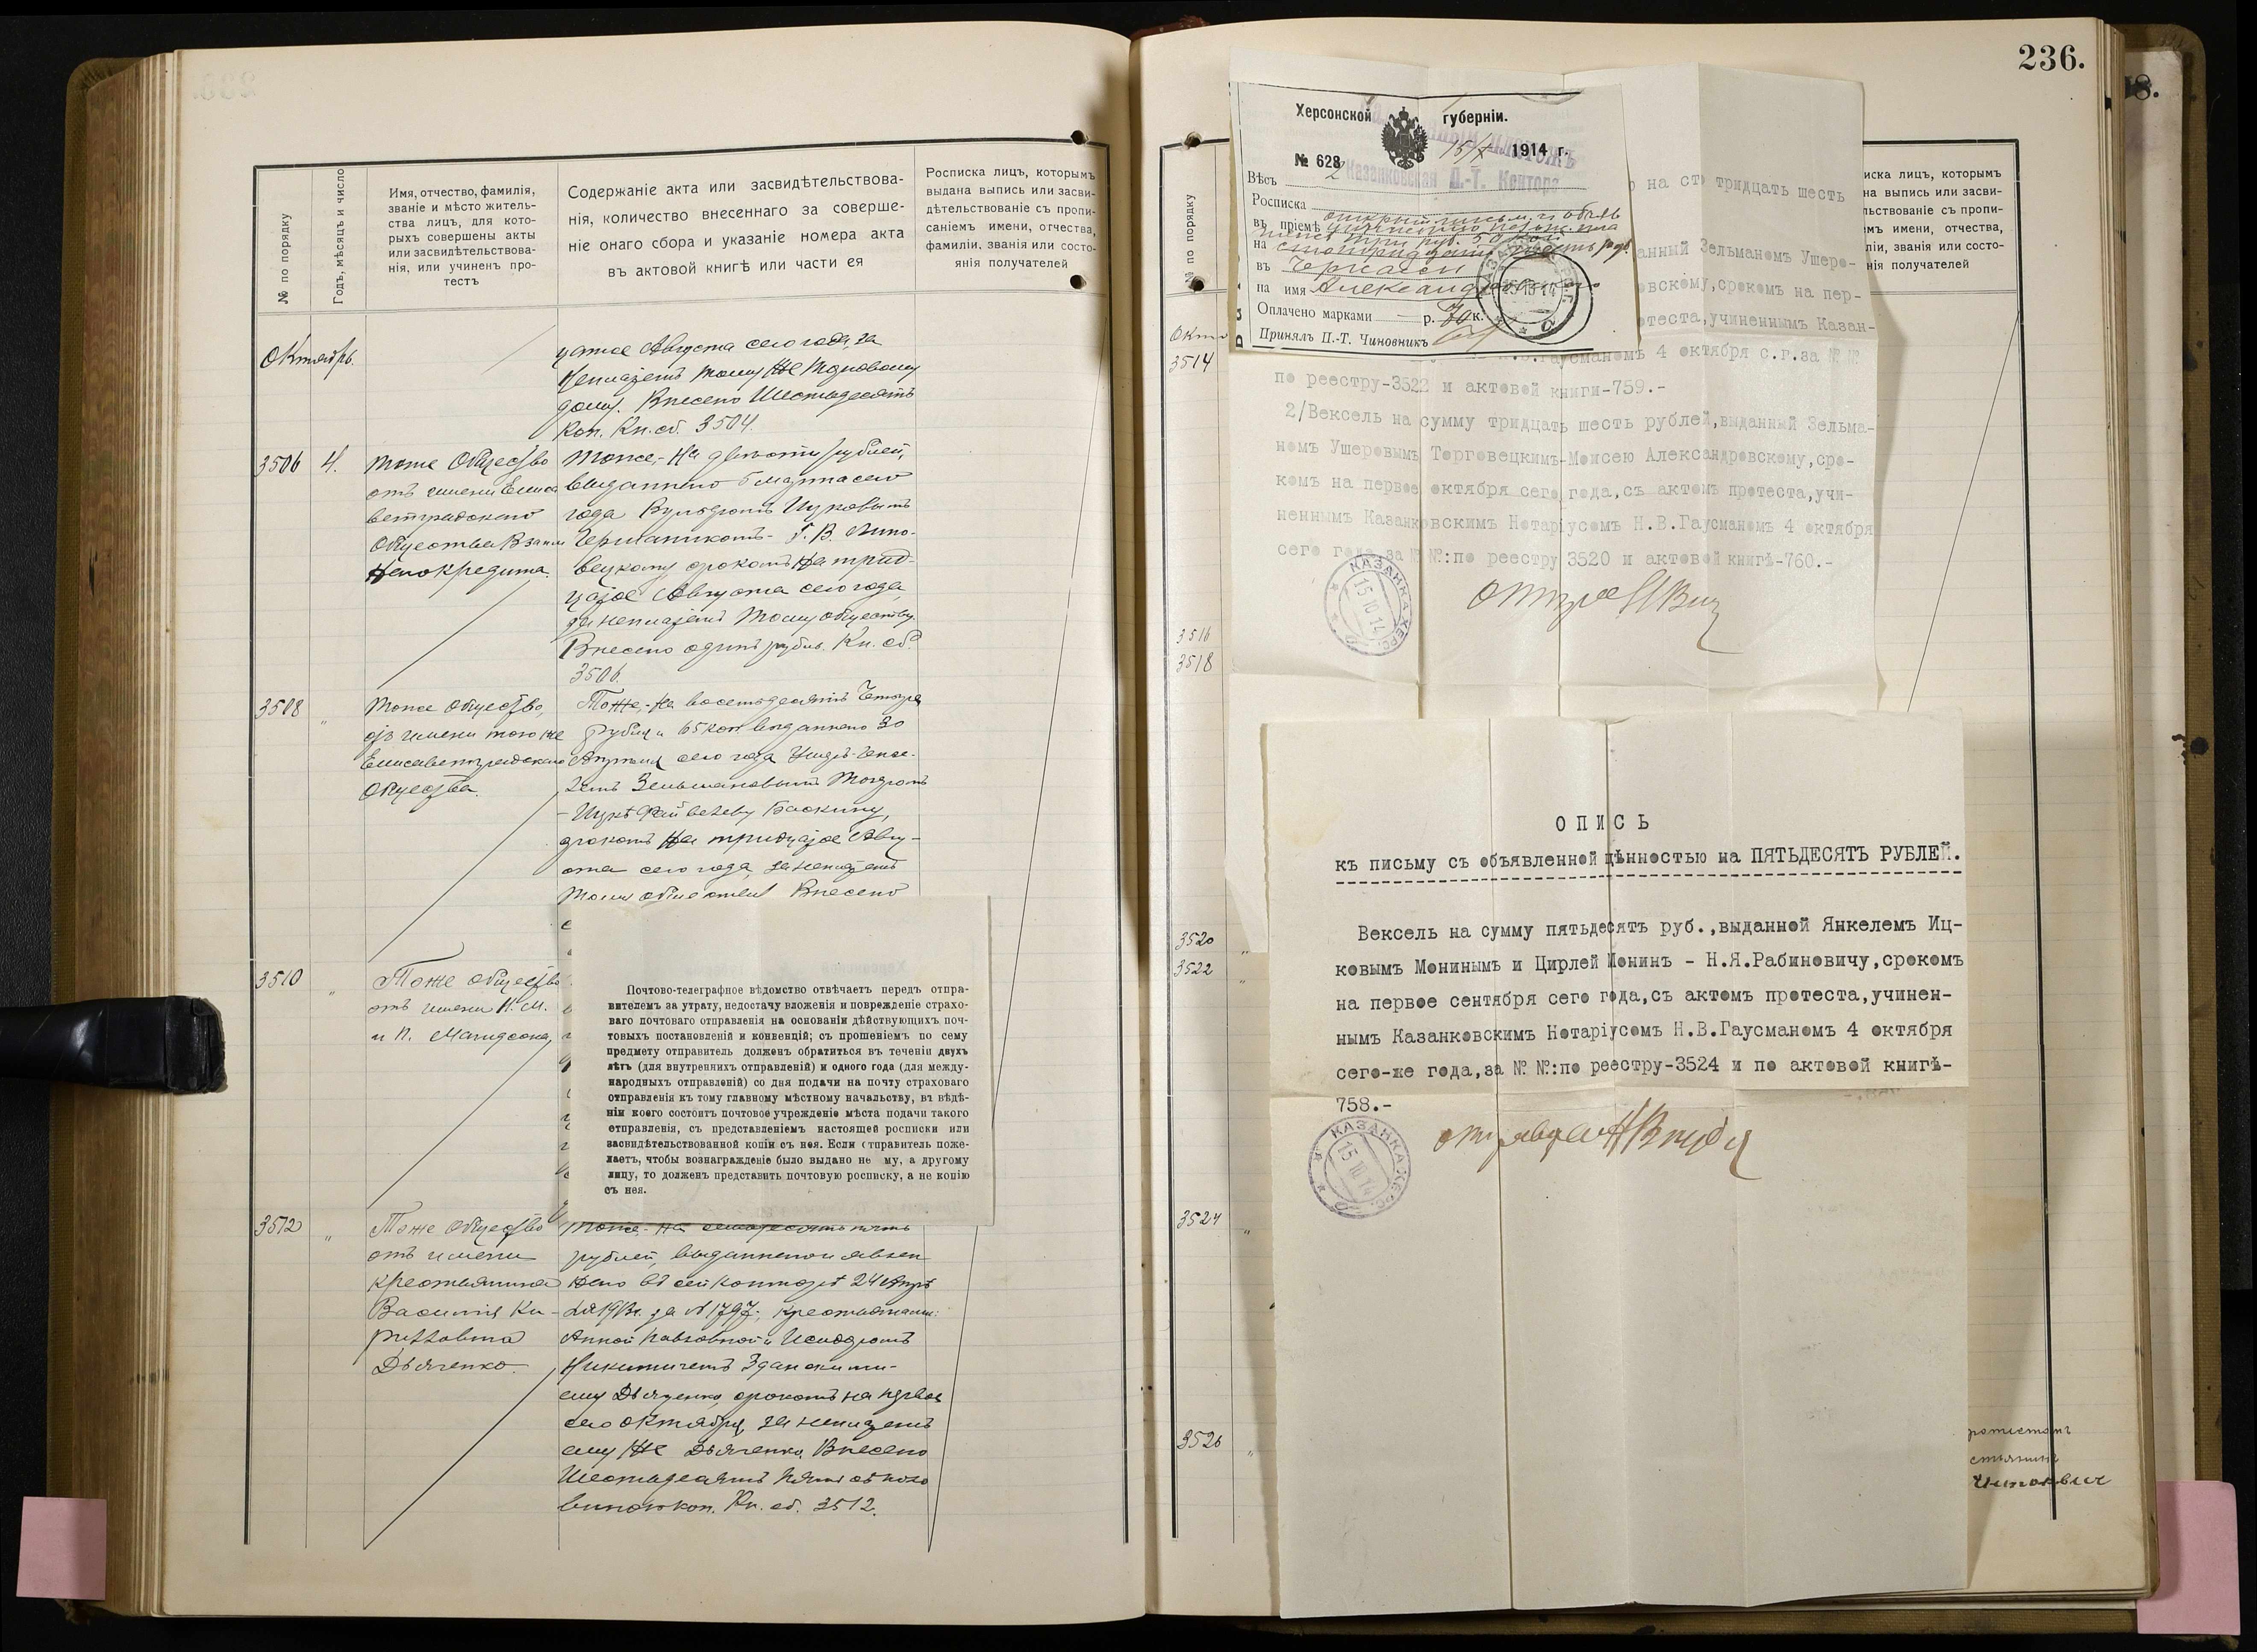 236.
№ по порядку
Годъ, мѣсяцъ и число
Имя, отчество, фамилія,
званіе и мѣсто житель-
ства лицъ, для кото-
рыхъ совершены акты
или засвидѣтельствова-
нія, или учиненъ про-
тестъ
Содержаніе акта или засвидѣтельствова-
нія, количество внесеннаго за соверше-
ніе онаго сбора и указаніе номера акта
въ актовой книгѣ или части ея
Росписка лицъ, которымъ
выдана выпись или засви-
дѣтельствованіе съ пропи-
саніемъ имени, отчества,
фамиліи, званія или состо-
янія получателей
Октябрь.
цатое Августа сего года, за
неплатежъ тому же торговому
дому. Внесено Шестьдесятъ
коп. Кн. сб. 3504.
3506 4.
тоже Общество
отъ имени Елиса
ветградскаго
Общества Взаим
наго кредита.
тоже,- на двѣсти рублей,
выданнаго 5 марта сего
года
Черпаникомъ- Г. В. Липо-
вецкому срокомъ на трид-
цатое Августа сего года,
за неплатежъ тому обществу.
Внесено одинъ рубль. Кн. сб.
3506.
3508 "
тоже общество,
отъ имени того же
Елисаветградскаго
Общества.
Тоже,- на восемьдесятъ четыре
рубля 65 коп. выданнаго 30
Апрѣля сего года
Зельмановымъ
срокомъ на тридцатое Авгу-
ста сего года, за неплатежъ
тому обществу Внесено
3510 "
Тоже общество
отъ имени
и П.
Почтово-телеграфное вѣдомство отвѣчаетъ передъ отпра-
вителемъ за утрату, недостачу вложенія и поврежденіе страхо-
ваго почтоваго отправленія на основаніи дѣйствующихъ поч-
товыхъ постановленій и конвенцій; съ прошеніемъ по сему
предмету отправитель долженъ обратиться въ теченіи двухъ
лѣтъ (для внутреннихъ отправленій) и одного года (для между-
народныхъ отправленій) со дня подачи на почту страховаго
отправленія къ тому главному мѣстному начальству, въ вѣдѣ-
ніи коего состоитъ почтовое учрежденіе мѣста подачи такого
отправленія, съ представленіемъ настоящей росписки или
засвидѣтельствованной копіи съ нея. Если отправитель поже-
лаетъ, чтобы вознагражденіе было выдано не му, а другому
лицу, то долженъ представить почтовую росписку, а не копію
съ нея.
3512 "
Тоже общество
отъ имени
крестьянина
Василія Ки-
рилловича
Дьяченко.
тоже- на семьдесятъ пять
рублей, выданнаго и явлен
наго въ сей конторѣ 24 апрѣ
ля 1913 г. за № 1797, крестьянами:
Анной Павловной и Исидоромъ
Никитичемъ
ему Дьяченко, срокомъ на первое
сего октября, за неплатежъ
ему же Дьяченко. Внесено
Шестьдесятъ
коп. Кн. сб. 3512.
№ по порядку
Херсонской губерніи.
№ 628 15/X 1914 г.
Казанковская П.-Т. Контора
Вѣсъ 2
Росписка
въ пріемѣ
на
въ Черкассы
на имя
Оплачено марками р. 70 к.
Принялъ П.-Т. Чиновникъ
на сто тридцать шесть
анный Зельманомъ Ушеро-
овскому,срокомъ на пер-
отеста,учиненнымъ Казан-
Гаусманомъ 4 октября с.г.за № №
по реестру-3522 и актовой книги-759.-
2/Вексель на сумму тридцать шесть рублей,выданный Зельма-
номъ Ушеровымъ Торговецкимъ-Моисею Александровскому,сро-
комъ на первое октября сего года,съ актомъ протеста,учи-
неннымъ Казанковскимъ Нотаріусомъ Н.В.Гаусманомъ 4 октября
сего года,за № №:по реестру 3520 и актовой книгѣ-760.-
КАЗАНКА ХЕРС.
15 10 14
иска лицъ, которымъ
на выпись или засви-
льствованіе съ пропи-
емъ имени, отчества,
ліи, званія или состо-
нія получателей
Окт
3514
3516
3518
3520 "
3522 "
3524 "
3526 "
ОПИСЬ
къ письму съ объявленной цѣнностью на ПЯТЬДЕСЯТЪ РУБЛЕЙ.
Вексель на сумму пятьдесятъ руб.,выданной Янкелемъ Иц-
ковымъ Монинымъ и Цирлей Монинъ - Н.Я.Рабиновичу,срокомъ
на первое сентября сего года,съ актомъ протеста,учинен-
нымъ Казанковскимъ Нотаріусомъ Н.В.Гаусманомъ 4 октября
сего-же года,за № №:по реестру-3524 и по актовой книгѣ-
758.-
КАЗАНКА ХЕРС.
15 10 14